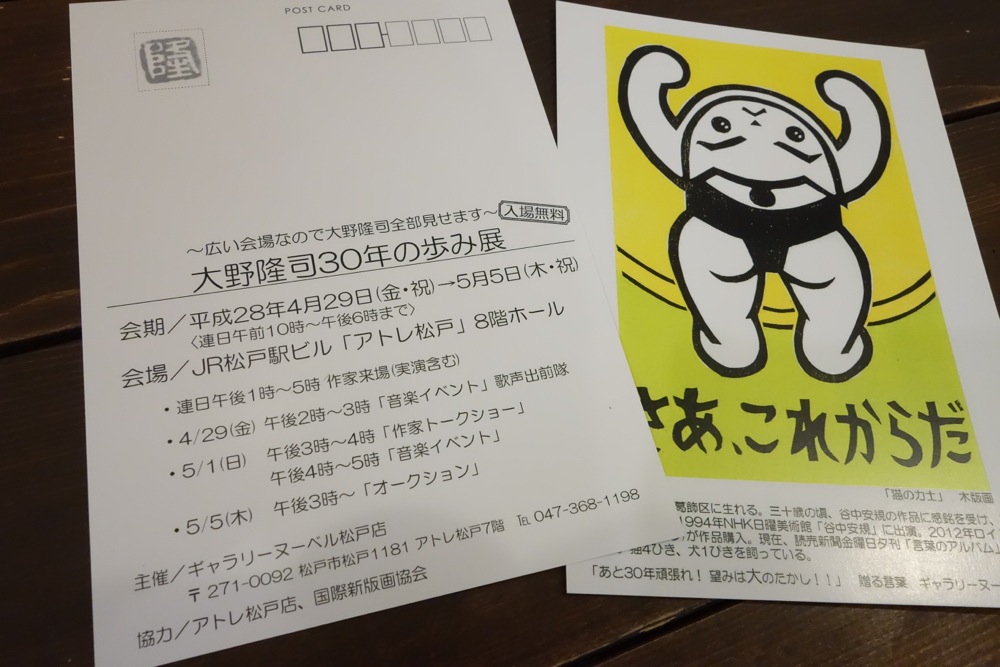 POST CARD
隆
～広い会場なので大野隆司全部見せます～ 入場無料
大野隆司30年の歩み展
会期／平成28年4月29日(金・祝)→5月5日(木・祝)
〈連日午前10時～午後6時まで〉
会場／JR松戸駅ビル「アトレ松戸」8階ホール
・連日午後1時～5時 作家来場(実演含む)
・4/29(金) 午後2時～3時「音楽イベント」歌声出前隊
・5/1(日) 午後3時～4時「作家トークショー」
午後4時～5時「音楽イベント」
・5/5(木) 午後3時～「オークション」
主催／ギャラリーヌーベル松戸店
〒271-0092 松戸市松戸1181 アトレ松戸7階 ℡ 047-368-1198
協力／アトレ松戸店、国際新版画協会
さあ、これからだ
「猫の力士」 木版画
葛飾区に生れる。三十歳の頃、谷中安規の作品に感銘を受け、
1994年NHK日曜美術館「谷中安規」に出演。2012年ロイ
)が作品購入。現在、読売新聞金曜日夕刊「言葉のアルバム」
猫4ひき、犬1ぴきを飼っている。
「あと30年頑張れ！ 望みは大のたかし！！」 贈る言葉 ギャラリーヌー